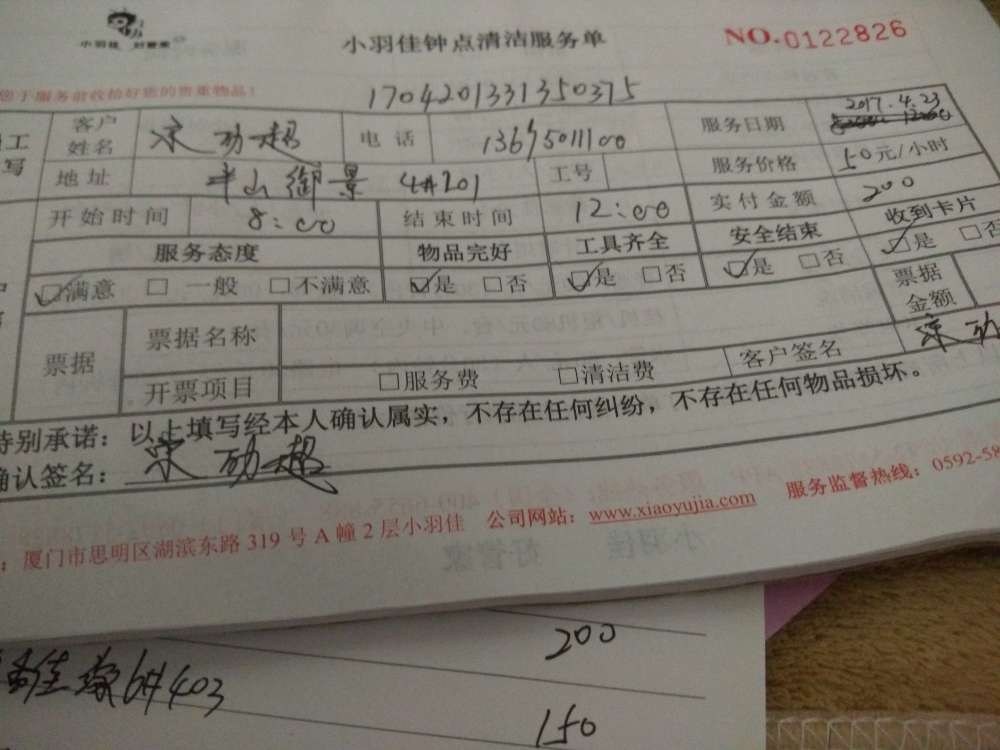 小羽佳 好管家
小羽佳钟点清洁服务单
NO.0122826
您于服务前收拾好您的贵重物品！
170420133135037５
客户姓名 宋劲超 电话 服务日期 2017.4.23
地址 半山御景 4#201 工号 服务价格 50元/小时
开始时间 8:00 结束时间 12:00 实付金额 200
服务态度 物品完好 工具齐全 安全结束 收到卡片
☑满意 □一般 □不满意 ☑是 □否 ☑是 □否 ☑是 □否 ☑是 □否
票据 票据名称 票据金额
开票项目 □服务费 □清洁费 客户签名 宋劲
特别承诺：以上填写经本人确认属实，不存在任何纠纷，不存在任何物品损坏。
确认签名：宋劲超
：厦门市思明区湖滨东路319号A幢2层小羽佳 公司网站：www.xiaoyujia.com 服务监督热线：0592-58
200
6#403
150